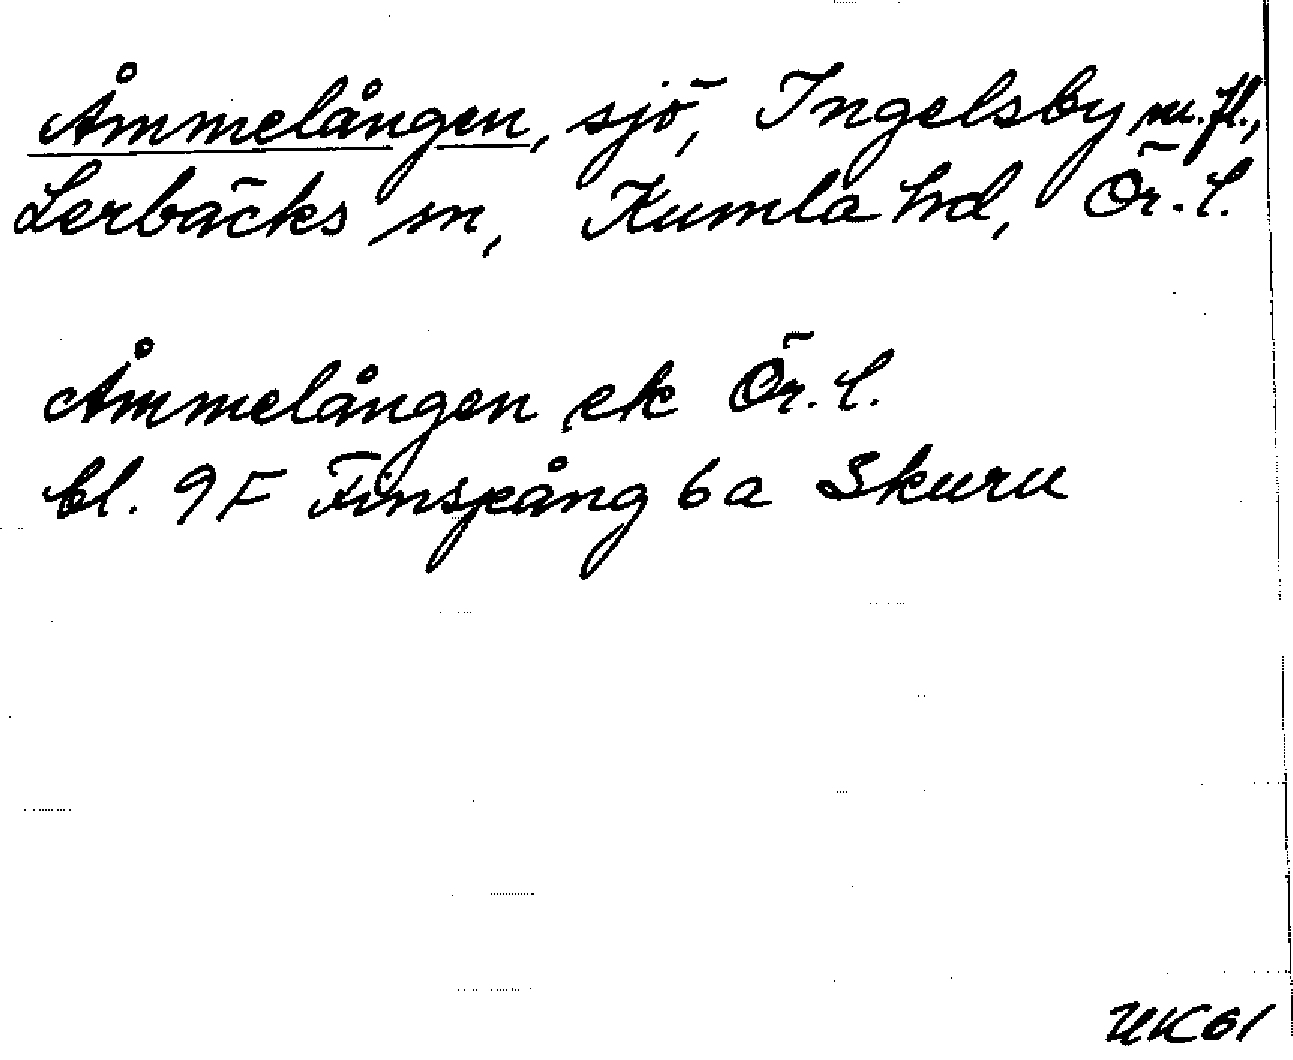 Åmmelången, sjö, Ingelsby m. fl.,
Lerbäcks sn, Kumla hd, Ör. l.
Åmmelången ek Ör. l.
bl. 9F Finspång 6a Skuru
UK61